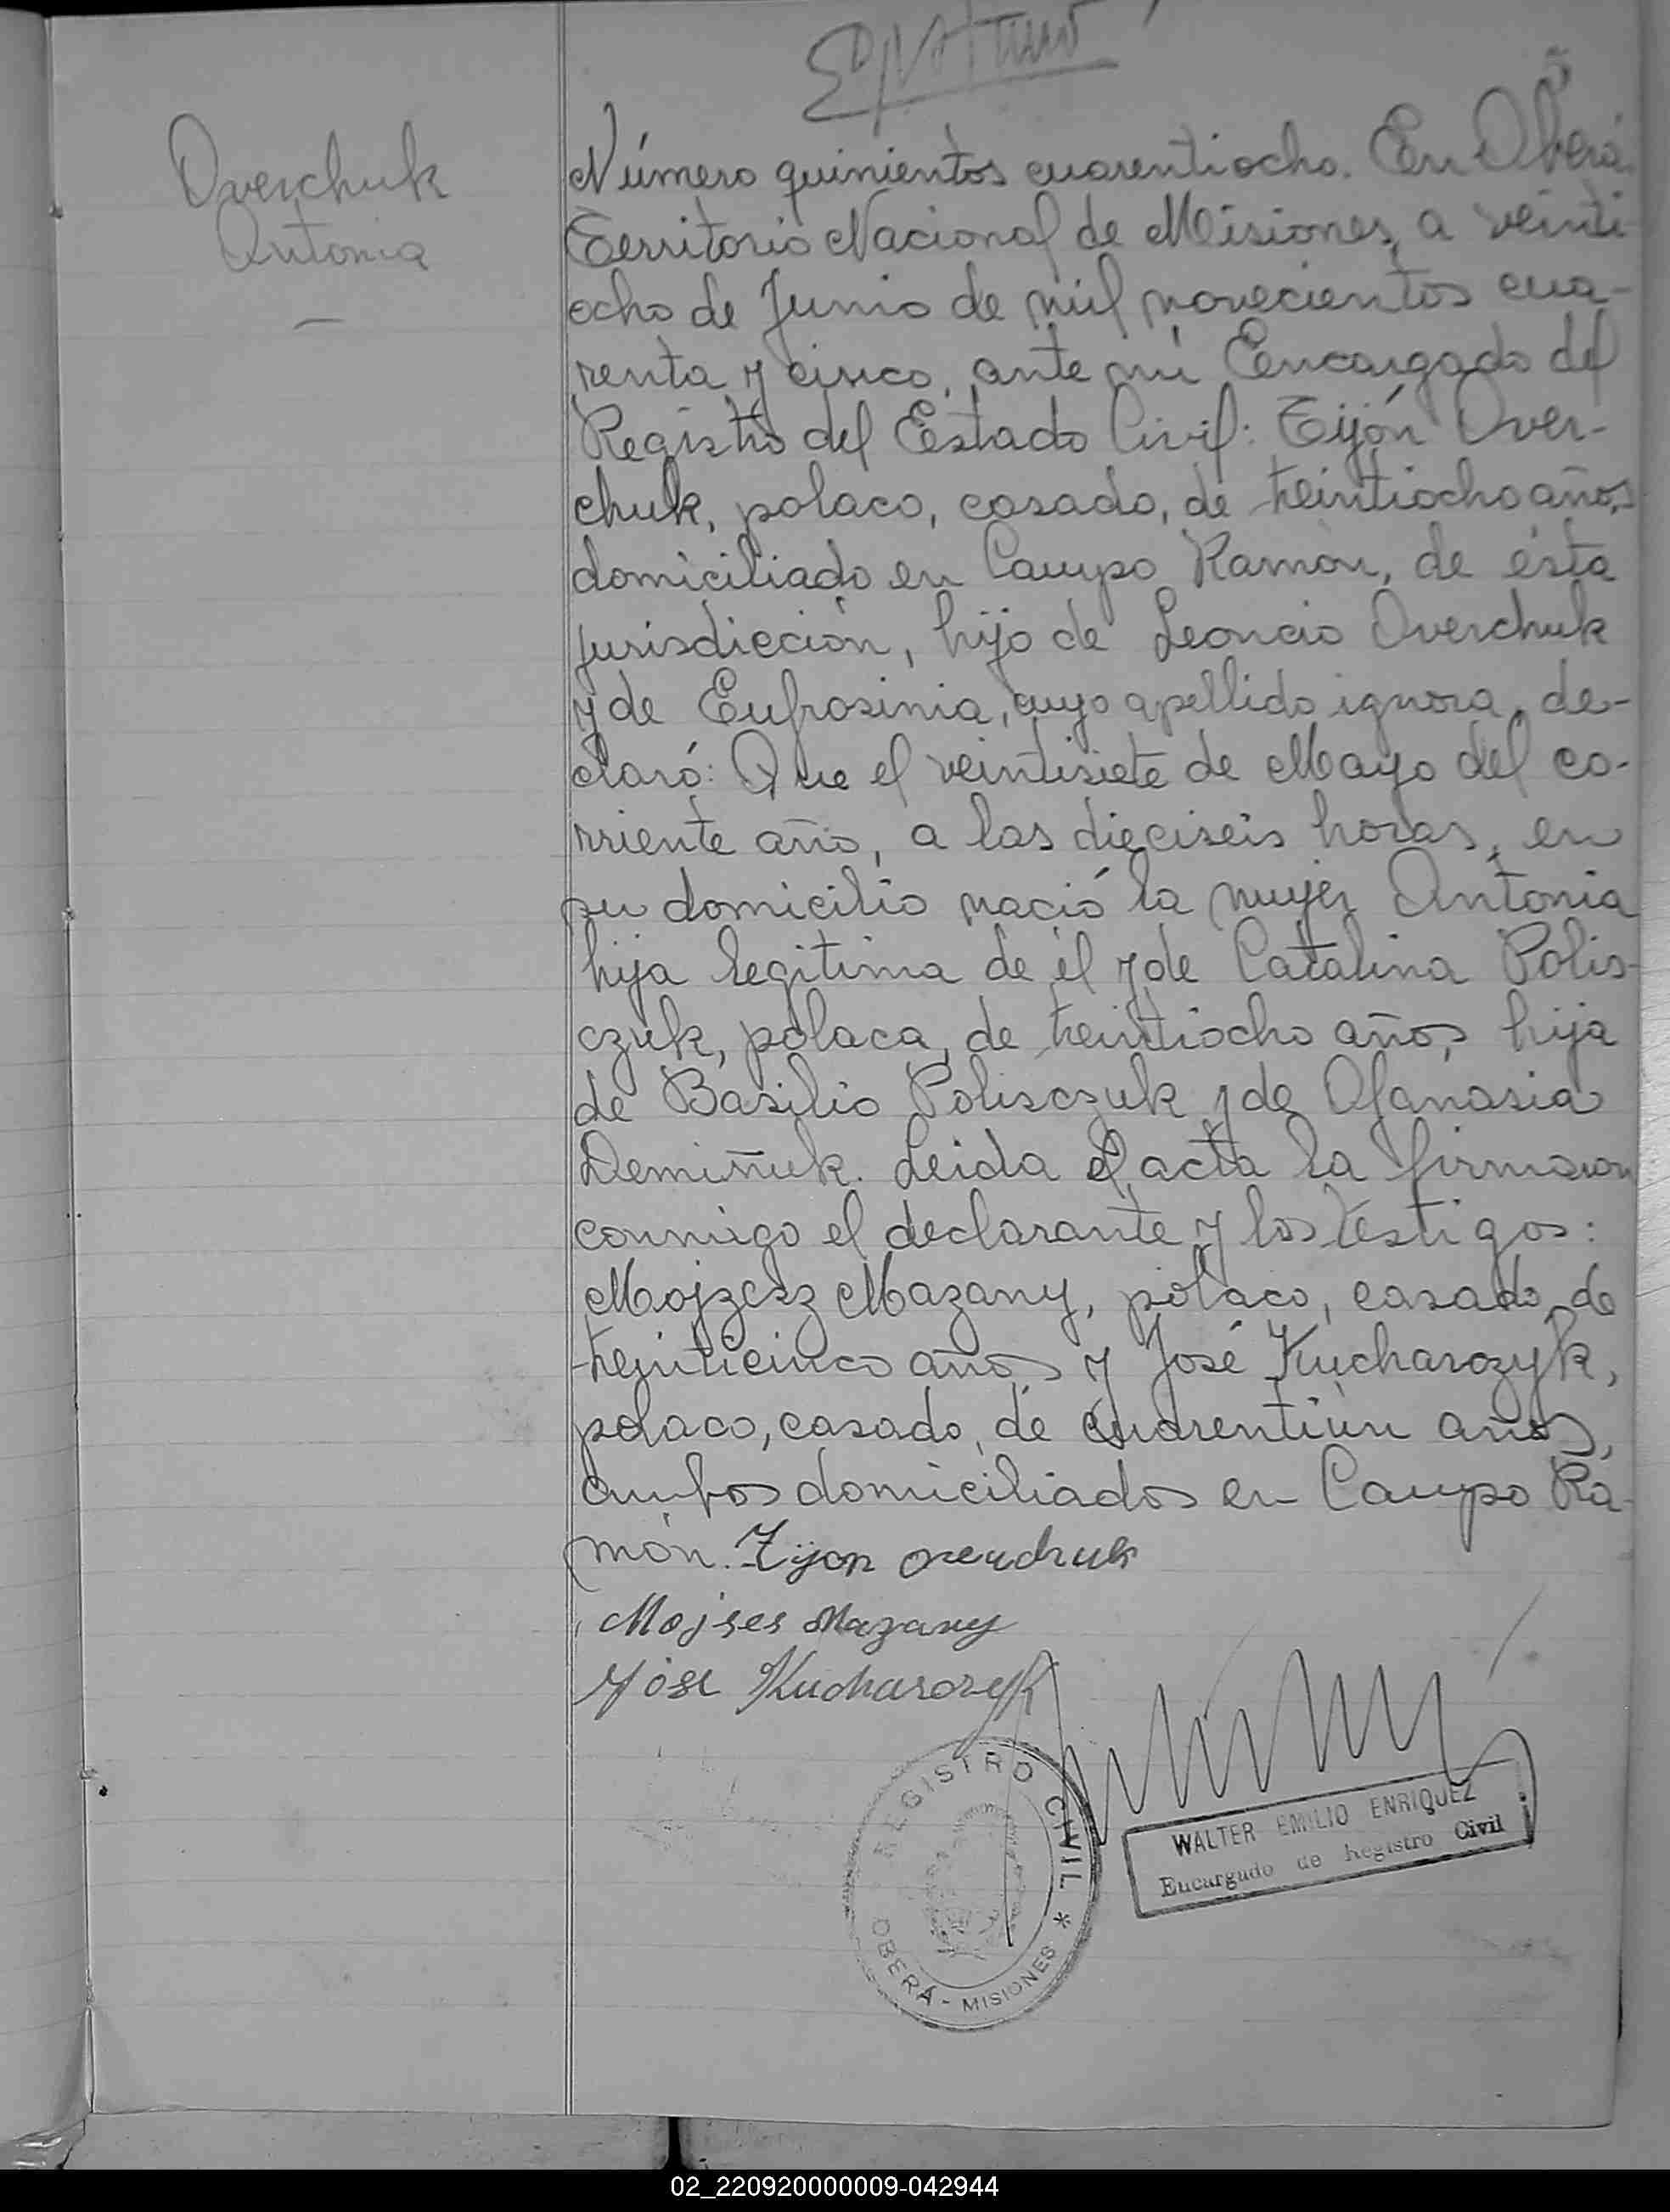 Overchuk
Antonia
Número quinientos cuarentiocho. En Oberá
Territorio Nacional de Misiones, a veinti-
ocho de Junio de mil novecientos cua-
renta y cinco, ante mi Encargado del
Registro del Estado Civil: Tijón Over-
chuk, polaco, casado, de treintiocho años,
domiciliado en Campo Ramón, de ésta
jurisdicción, hijo de Leoncio Overchuk
y de Eufrosinia, cuyo apellido ignora, de-
claró: Que el veintisiete de Mayo del co-
rriente año, a las dieciseis horas, en
su domicilio nació la mujer Antonia
hija legitima de él y de Catalina Polis-
czuk, polaca, de treintiocho años, hija
de Basilio Polisczuk y de Afanasia
Demiñuk. Leida el acta la firmaron
conmigo el declarante y los testigos:
Mojzesz Mazany, polaco, casado, de
treinticinco años y José Kucharczyk,
polaco, casado, de cuarentiún años,
ambos domiciliados en Campo Ra-
món. Tijon
Mojses Mazany
José Kucharczyk
REGISTRO CIVIL *
OBERÁ - MISIONES
WALTER EMILIO ENRIQUEZ
Encargado de Registro Civil
02_220920000009-042944